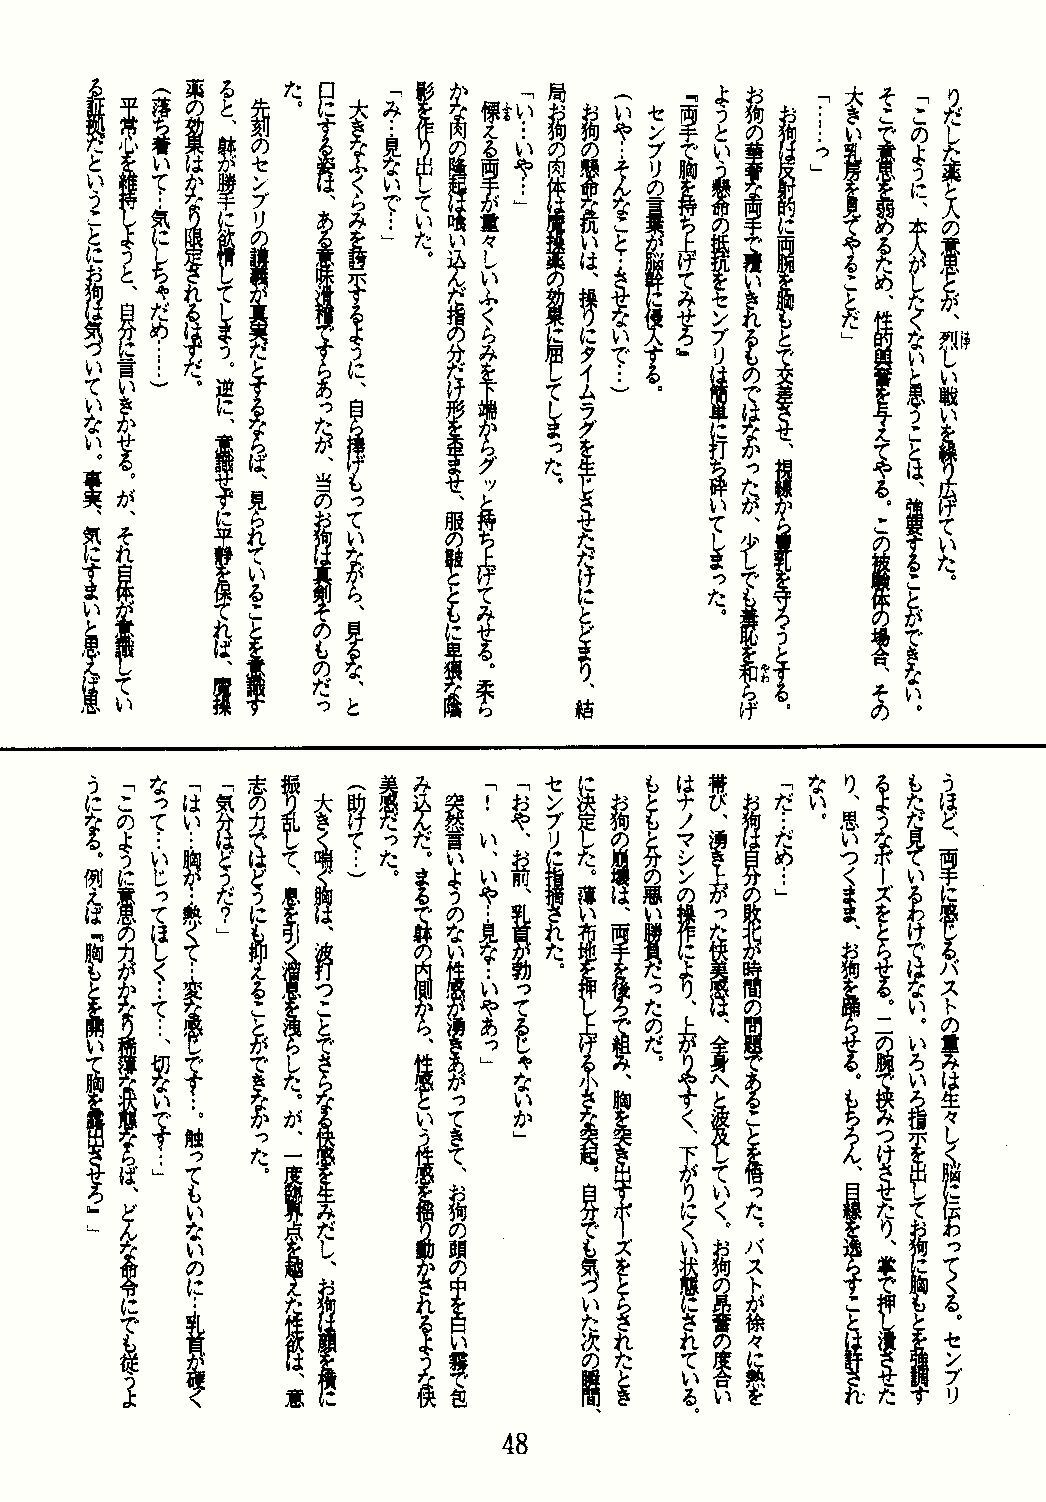 りだした薬と人の意思とが、烈しい戦いを繰り広げていた。
「このように、本人がしたくないと思うことは、強要することができない。
そこで意思を弱めるため、性的興奮を与えてやる。この被験体の場合、その
大きい乳房を見てやることだ」
「……っ」
お狗は反射的に両腕を胸もとで交差させ、視線から豊乳を守ろうとする。
お狗の華奢な両手で覆いきれるものではなかったが、少しでも羞恥を和らげ
ようという懸命の抵抗をセンブリは簡単に打ち砕いてしまった。
『両手で胸を持ち上げてみせろ』
センブリの言葉が脳幹に侵入する。
(いや…そんなこと…させないで…)
お狗の懸命な抗いは、操りにタイムラグを生じさせただけにとどまり、結
局お狗の肉体は魔操薬の効果に屈してしまった。
「い…いや…」
慄える両手が重々しいふくらみを下端からグッと持ち上げてみせる。柔ら
かな肉の隆起は喰い込んだ指の分だけ形を歪ませ、服の皺とともに卑猥な陰
影を作り出していた。
「み…見ないで…」
大きなふくらみを誇示するように、自ら捧げもっていながら、見るな、と
口にする姿は、ある意味滑稽ですらあったが、当のお狗は真剣そのものだっ
た。
先刻のセンブリの講義が真実だとするならば、見られていることを意識す
ると、躰が勝手に欲情してしまう。逆に、意識せずに平静を保てれば、魔操
薬の効果はかなり限定されるはずだ。
(落ち着いて…気にしちゃだめ……)
平常心を維持しようと、自分に言いきかせる。が、それ自体が意識してい
る証拠だということにお狗は気づいていない。事実、気にすまいと思えば思
うほど、両手に感じるバストの重みは生々しく脳に伝わってくる。センブリ
もただ見ているわけではない。いろいろ指示を出してお狗に胸もとを強調す
るようなポーズをとらせる。二の腕で挟みつけさせたり、掌で押し潰させた
り、思いつくまま、お狗を踊らせる。もちろん、目線を逸らすことは許され
ない。
「だ…だめ…」
お狗は自分の敗北が時間の問題であることを悟った。バストが徐々に熱を
帯び、湧き上がった快美感は、全身へと波及していく。お狗の昂奮の度合い
はナノマシンの操作により、上がりやすく、下がりにくい状態にされている。
もともと分の悪い勝負だったのだ。
お狗の崩壊は、両手を後ろで組み、胸を突き出すポーズをとらされたとき
に決定した。薄い布地を押し上げる小さな突起。自分でも気づいた次の瞬間、
センブリに指摘された。
「おや、お前、乳首が勃ってるじゃないか」
「！　い、いや…見な…いやあっ」
突然言いようのない性感が湧きあがってきて、お狗の頭の中を白い霧で包
み込んだ。まるで躰の内側から、性感という性感を揺り動かされるような快
美感だった。
(助けて…)
大きく喘ぐ胸は、波打つことでさらなる快感を生みだし、お狗は顔を横に
振り乱して、息を引く溜息を洩らした。が、一度臨界点を越えた性欲は、意
志の力ではどうにも抑えることができなかった。
「気分はどうだ？」
「はい…胸が…熱くて…変な感じです…。触ってもいないのに…乳首が硬く
なって…いじってほしく…て…、切ないです…」
「このように意思の力がかなり稀薄な状態ならば、どんな命令にでも従うよ
うになる。例えば『胸もとを開いて胸を露出させろ』」
48